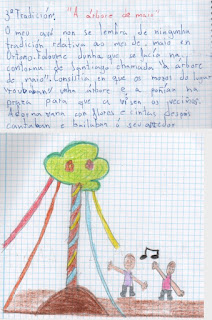 3ª Tradición, "A árbore de maio"
O meu avó non se lembra de ningunha
tradición relativa ao mes de maio en
Ortoño. Faloume dunha que se facía na
contorna de Santiago chamada "a árbore
de maio". Consistía en que os mozos do lugar
roubaban unha árbore e a poñían na
praza para que a visen os veciños.
Adornavana con flores e cintas despois
cantaban e bailaban ó seu arredor